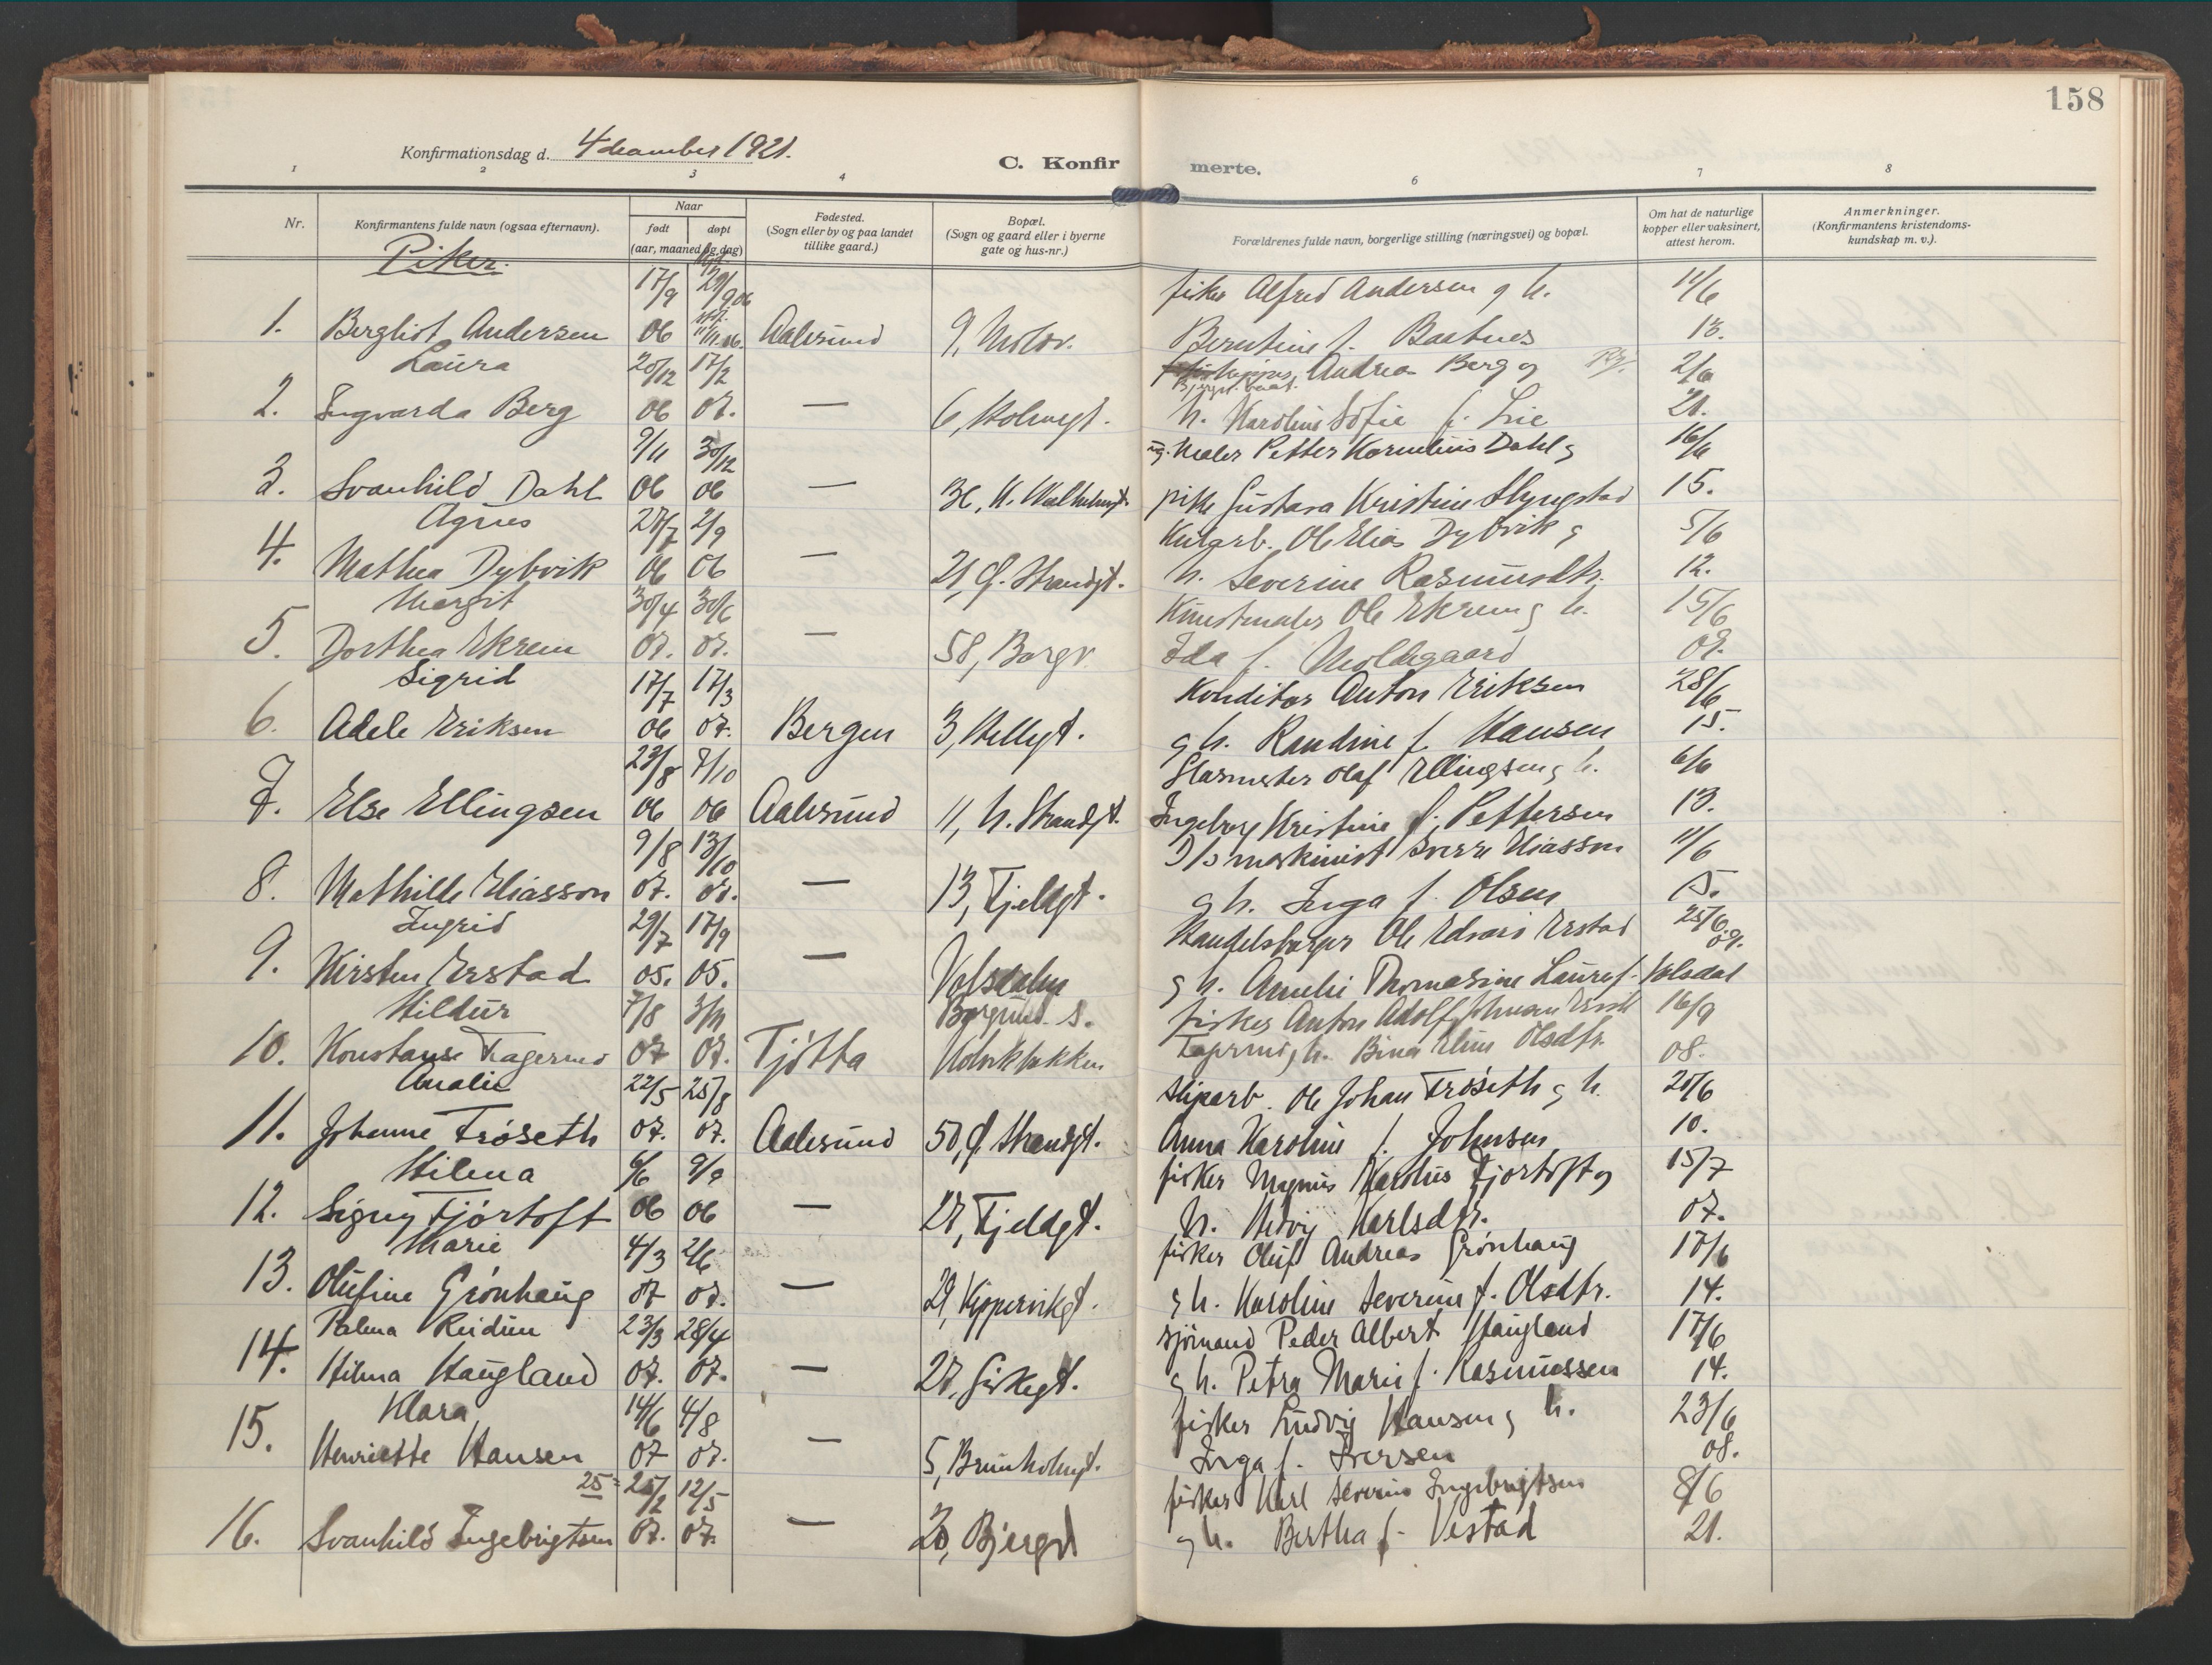 158
Konfirmationsdag d. 4 december 1921.
C. Konfirmerte.
1 2 3 4 6 7 8
Nr.
Konfirmantens fulde navn (ogsaa efternavn).
Naar
født
døpt
(aar, maaned og dag)
Fødested.
(Sogn eller by og paa landet
tillike gaard.)
Bopæl.
(Sogn og gaard eller i byerne
gate og hus-nr.)
Forældrenes fulde navn, borgerlige stilling (næringsvei) og bopæl.
Om hat de naturlige
kopper eller vaksinert,
attest herom.
Anmerkninger.
(Konfirmantens kristendoms-
kundskap m. v.).
Piker.
17/9 29/9 06 fisker Alfred Andersen g h. 11/6
1. Bergliot Andersen 06 11/11.06. Aalesund 9, Molov. Berntine f. Baatnes 13.
Laura 20/12 17/2 Andreas Berg g 2/6
2. Ingvarda Berg 06 07. — 6, Holmegt. h. Karoline Sofie f. Lie 21.
9/11 30/12 ug. Maler Petter Kornelius Dahl g 16/6
3. Svanhild Dahl 06 06 — 36, K. Wilhelmsgt. pike Gustava Kristine Slyngstad 15.
Agnes 27/7 2/9 Kularb. Ole Elias Dybvik g 5/6
4. Mathea Dybvik 06 06 — 21, Ø. Strandgt. h. Severine Rasmusdtr. 12.
Margit 30/4 30/6 Kunstmaler Ole Ekrem g h. 15/6
5. Dorthea Ekrem 07. 07. — 58, Borgv. Ida f. Moldegaard 09.
Sigrid 17/7 17/3 Konditor Anton Eriksen 28/6
6. Adele Eriksen 06 07. Bergen 3, Hellegt. g h. Randine f. Hansen 15.
23/8 7/10 Glasmester Olaf Ellingsen g h. 6/6
7. Else Ellingsen 06 06 Aalesund 11, N. Strandgt. Ingeborg Kristine f. Pettersen 13.
9/8 13/10 D/s maskinist Sverre Eliasson 11/6
8. Mathilde Eliasson 07. 07. — 13, Fjeldgt. g h. Inga f. Olsen 15.
Ingrid 29/7 17/9 Handelsborger Ole Edvard Erstad 25/6 09.
9. Kirsten Erstad 05. 05. — Volsdalen g h. Amelie Thomasine Laura f. Volsdal
Hildur 7/8 3/11 Borgund S. fisker Anton Adolf Johan 16/9
10. Konstanse Fagermo 07 07. Tjötta Nørvikbakken Fagermo g h. Bina Eline Olsdtr. 08.
Amalie 22/5 25/8 Sliparb. Ole Johan Frøseth g h. 20/6
11. Johanne Frøseth 07. 07. Aalesund 50, Ø. Strandgt. Anna Karoline f. Johnsen 10.
Hilma 6/6 9/9 fisker Magnus Karolius Fjørtoft g 15/7
12. Signy Fjörtoft 06 06 — 27, Fjeldgt. h. Hedvig Karlsdtr. 07.
Marie 4/3 2/6 fisker Oluf Andreas Grønhaug 17/6
13. Olufine Grønhaug 07 07. — 29, Kippervikgt. g h. Karoline Severine f. Olsdtr. 14.
Palma Reidun 23/3 28/4 sjömand Peder Albert Haugland 17/6
14. Hilma Haugland 07. 07. — 27, Giskegt. g h. Petra Marie f. Rasmussen 14.
Klara 14/6 4/8 fisker Ludvig Hansen g h. 23/6
15. Henriette Hansen 07 07. — 5, Brunholmgt. Inga f. Iversen 08.
25 = 25/2 12/5 fisker Karl Severin Ingebrigtsen 8/6
16. Svanhild Ingebrigtsen 07. 07. — 20, Bjergd g h. Bertha f. Vestad 21.